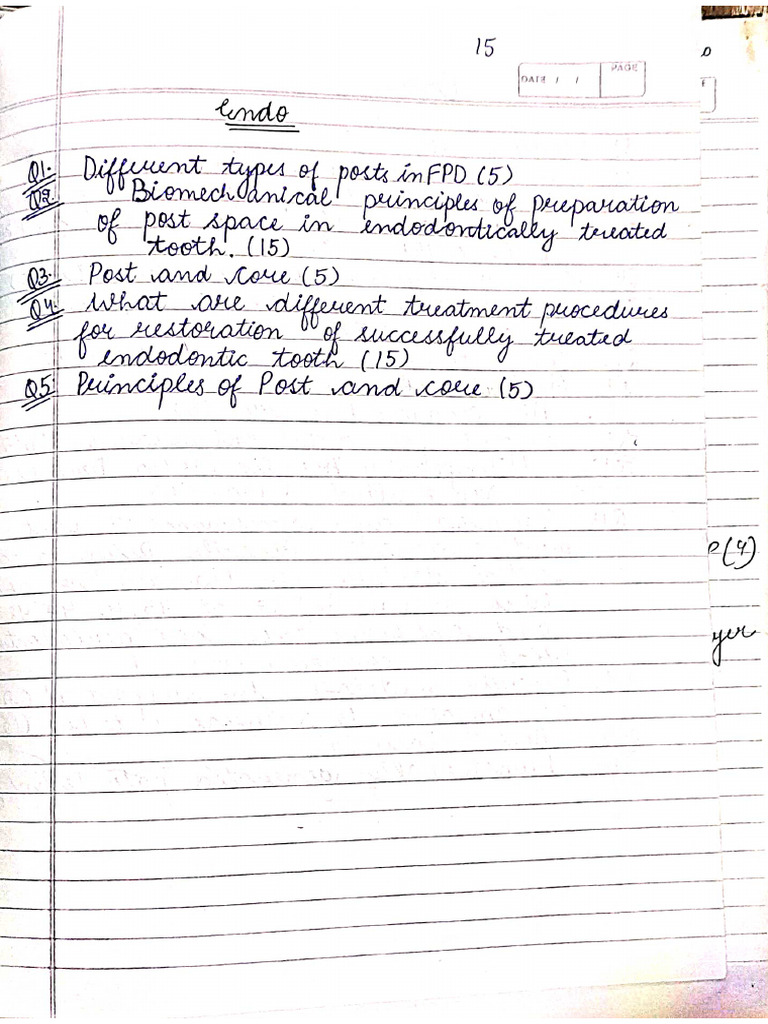 15
DATE / /
PAGE
Endo
Q1. Different types of posts in FPD (5)
Q2. Biomechanical principles of preparation
of post space in endodontically treated
tooth. (15)
Q3. Post and core (5)
Q4. What are different treatment procedures
for restoration of successfully treated
endodontic tooth (15)
Q5. Principles of Post and core (5)
e(4)
yer